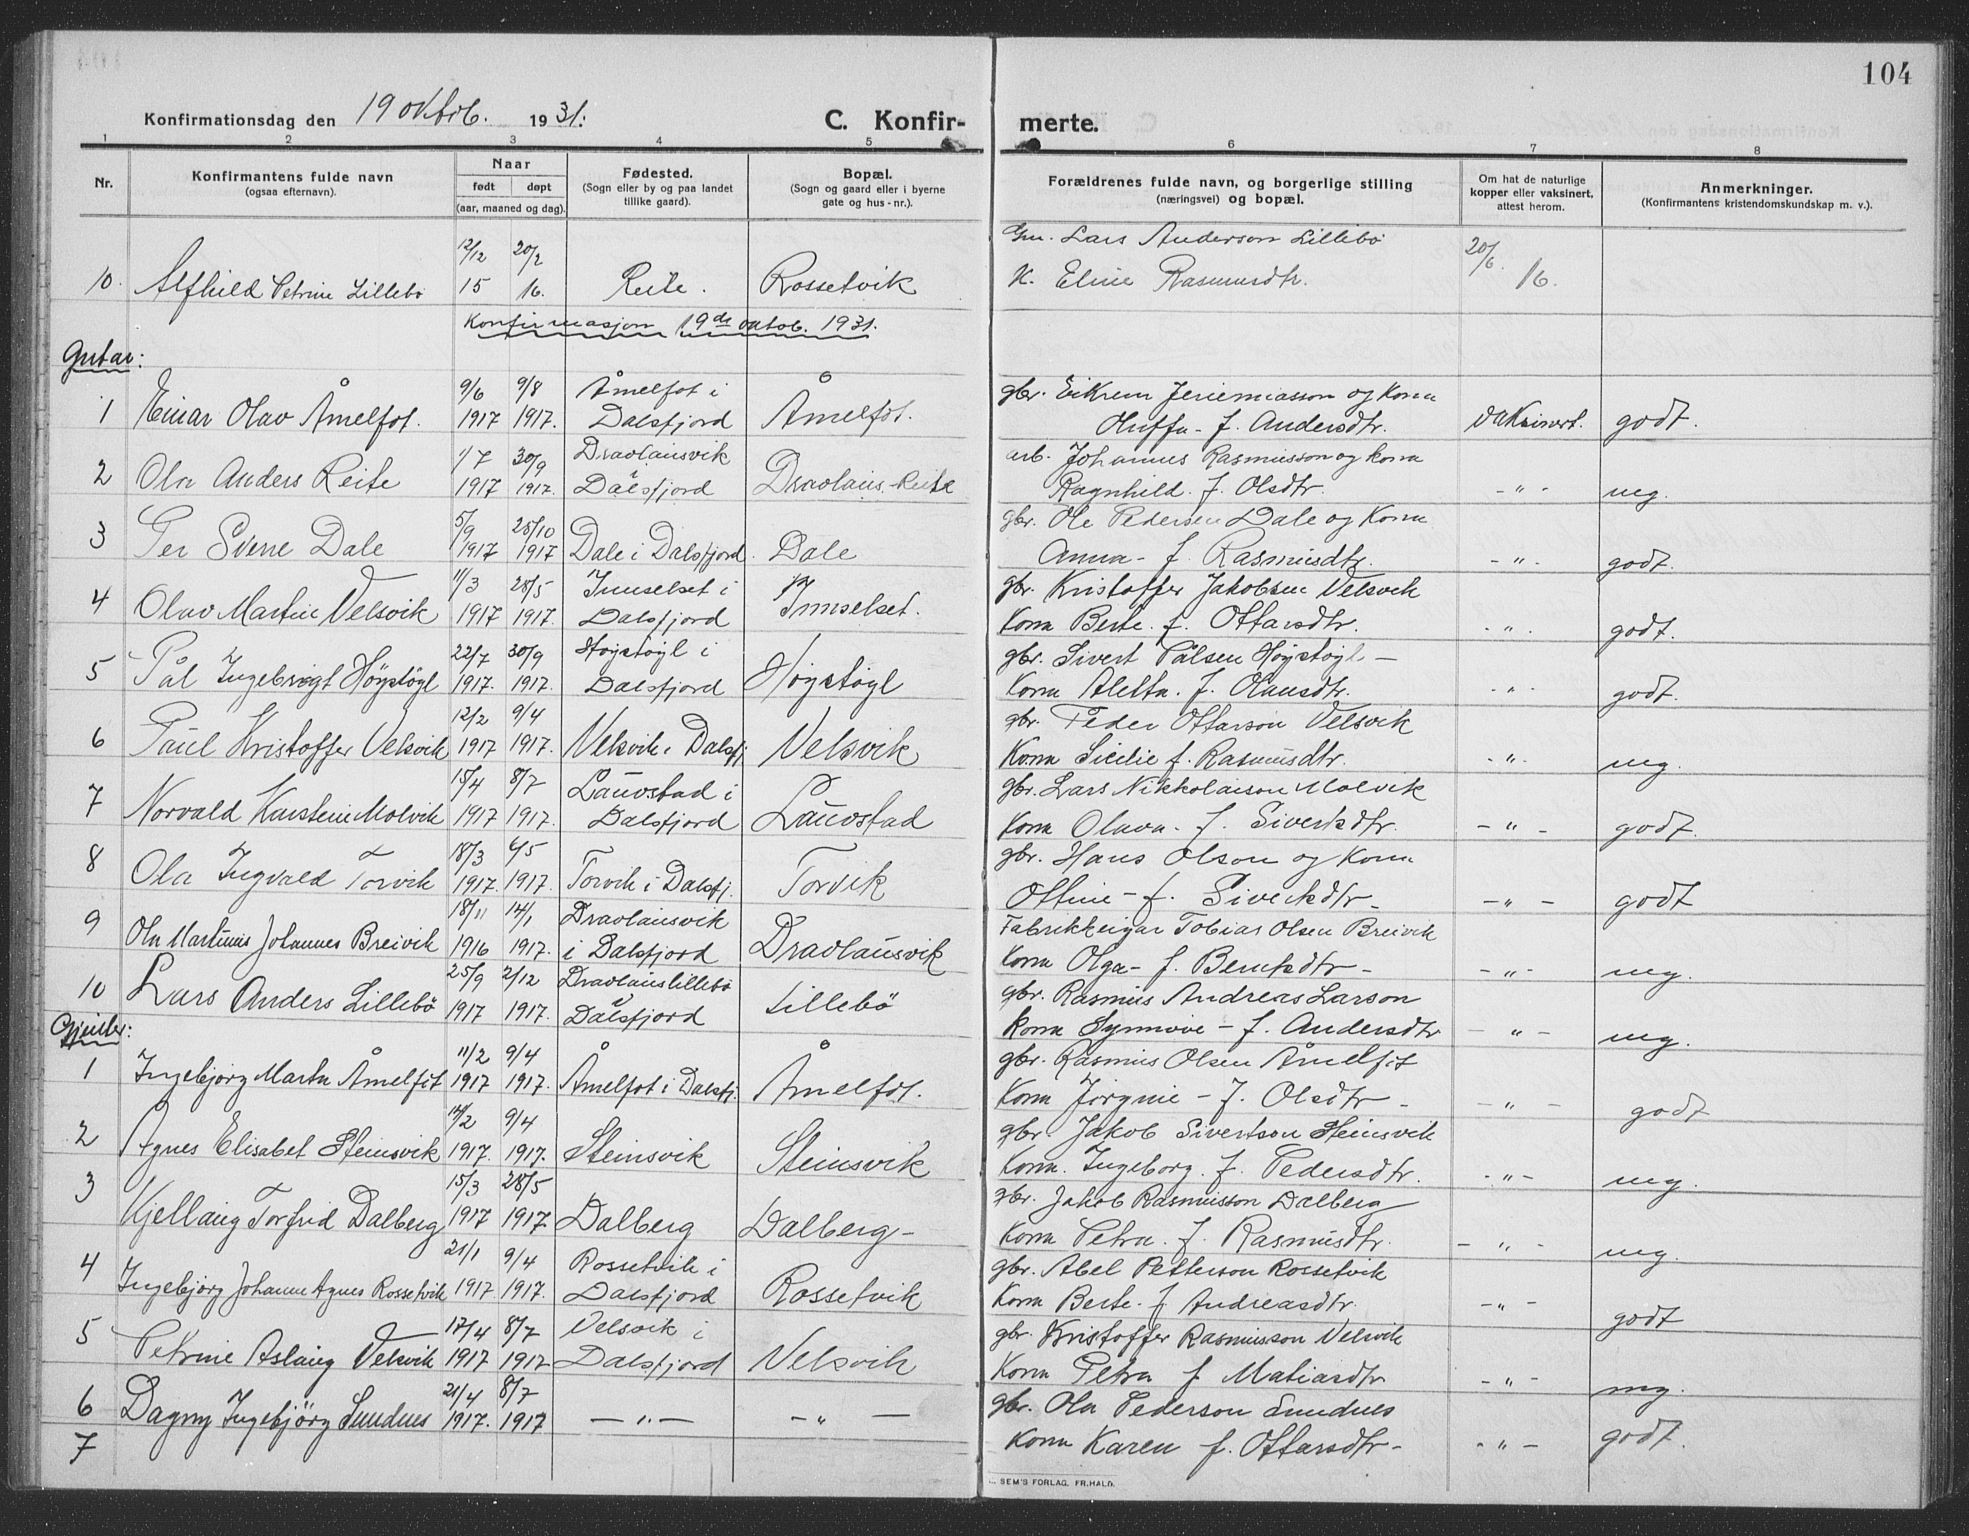 104
Konfirmationsdag den 19 oktob. 1931.
C. Konfirmerte.
1 2 3 4 5 6 7 8
Nr.
Konfirmantens fulde navn
(ogsaa efternavn).
Naar
født døpt
(aar, maaned og dag).
Fødested.
(Sogn eller by og paa landet
tillike gaard).
Bopæl.
(Sogn og gaard eller i byerne
gate og hus-nr.).
Forældrenes fulde navn, og borgerlige stilling
(næringsvei) og bopæl.
Om hat de naturlige
kopper eller vaksinert,
attest herom.
Anmerkninger.
(Konfirmantens kristendomskundskap m. v.).
12/12 20/2 Gm. Lars Anderson Lillebö 20/6
10. Alfhild Petrine Lillebö 15 16. Reite. Rossetvik K. Eline Rasmusdtr. 16.
Konfirmasjon 19de oktob. 1931.
Gutar:
9/6 9/8 Åmelfot i gbr. Eikrem Jeriemiasson og kona
1 Einar Olav Åmelfot. 1917 1917. Dalsfjord Åmelfot. f. Andersdtr. vaksinert. godt.
1/7 30/9 Dravlausvik arb. Johannes Rasmusson og kona
2 Ola Anders Reite 1917 1917. Dalsfjord Dravlaus-Reite Ragnhild f. Olsdtr. -"- mg.
5/9 28/10 gbr. Ole Pedersen Dale og Kona
3 Per Sverre Dale 1917 1917 Dale i Dalsfjord. Dale Anna - f. Rasmusdtr. -"- godt.
11/3 28/5 Innselset i gbr. Kristoffer Jakobsen Velsvik
4 Olav Martin Velsvik 1917 1917. Dalsfjord Innselset. Kona Berte f. Ottarsdtr. -"- godt.
22/7 30/9 Höystöyl i gbr. Sivert Pålsen Höystöyl -
5 Pål Ingebrigt Höystöyl 1917. 1917. Dalsfjord Höystöyl Kona Aletta. f. Olausdtr. -"- godt.
12/2 9/4 gbr. Peder Ottarson Velsvik
6 Paul Kristoffer Velsvik 1917 1917. Velsvik i Dalsfj. Velsvik Kona Sicilie f. Rasmusdtr. -"- mg.
15/4 8/7 Lauvstad i gbr. Lars Nikkolaison Molvik
7 Norvald Karstein Molvik 1917 1917. Dalsfjord Lauvstad Kona Olava - f. Sivertsdtr. -"- godt.
18/3 6/5 gbr. Hans Olson og Kona
8 Ola Ingvald Torvik 1917. 1917. Torvik i Dalsfj. Torvik Ottine - f. Sivertsdtr - -"- godt
18/11 14/1 Dravlausvik Fabrikkeigar Tobias Olsen Breivik
9 Ola Martinus Johannes Breivik 1916 1917. i Dalsfjord Dravlausvik Kona Olga - f. Berntsdtr - -"- mg.
25/9 2/12 Dravlauslillebö gbr. Rasmus Andreas Larson
10 Lars Anders Lillebö 1917 1917. Dalsfjord Lillebö kona Synnove - f. Andersdtr -"- mg.
Gjenter:
11/2 9/4 gbr. Rasmus Olsen Åmelfot
1 Ingebjörg Marta Åmelfot 1917 1917. Åmelfot i Dalsfj. Åmelfot. Kona Jörgine - f. Olsdtr - -"- godt
14/2 9/4 gbr. Jakob Sivertson Steinsvik
2 Agnes Elisabet Steinsvik 1917. 1917. Steinsvik Steinsvik Kona. Ingeborg. f. Pedersdtr. -"- mg.
15/3 28/5 gbr. Jakob Rasmusson Dalberg
3 Kjellaug Torfrid Dalberg 1917 1917. Dalberg Dalberg - Kona Petra. f. Rasmusdtr. -"- mg.
21/1 9/4 Rossetvik i gbr. Abel Petterson Rossetvik
4 Ingebjörg Johanne Agnes Rossetvik 1917. 1917. Dalsfjord Rossetvik Kona Berte. f. Andreasdtr. -"- godt
17/4 8/7 Velsvik i gbr. Kristoffer Rasmusson Velsvik
5 Petrine Aslaug Velsvik 1917 1917 Dalsfjord Velsvik Kona Petra f Matiasdtr -"- mg.
21/4 8/7 gbr. Ola Pederson Sundnes
6 Dagny Ingebjörg Sundnes 1917. 1917 -"- -"- Kona Karen f. Ottarsdtr - -"- godt.
7
SEM'S FORLAG. FR.HALD.